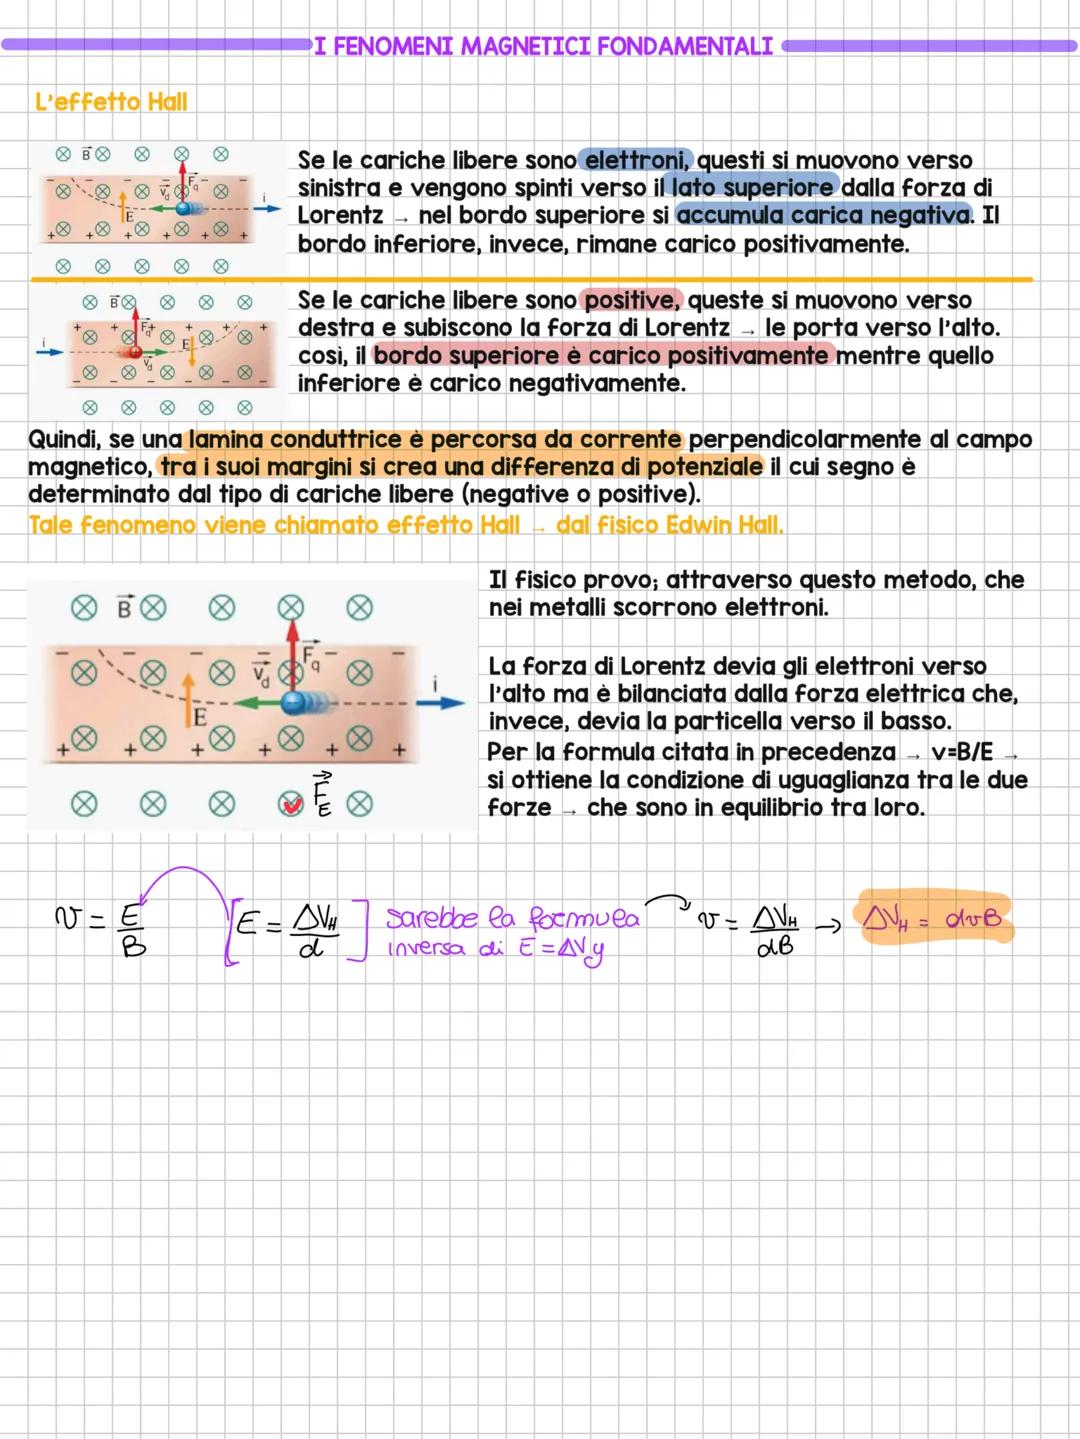 I FENOMENI MAGNETICI FONDAMENTALI
L'effetto Hall
B
Fq
Vd
E
i
Se le cariche libere sono elettroni, questi si muovono verso
sinistra e vengono spinti verso il lato superiore dalla forza di
Lorentz → nel bordo superiore si accumula carica negativa. Il
bordo inferiore, invece, rimane carico positivamente.
B
Fq
E
i
Vd
Se le cariche libere sono positive, queste si muovono verso
destra e subiscono la forza di Lorentz → le porta verso l'alto.
così, il bordo superiore è carico positivamente mentre quello
inferiore è carico negativamente.
Quindi, se una lamina conduttrice è percorsa da corrente perpendicolarmente al campo
magnetico, tra i suoi margini si crea una differenza di potenziale il cui segno è
determinato dal tipo di cariche libere (negative o positive).
Tale fenomeno viene chiamato effetto Hall → dal fisico Edwin Hall.
B
Fq
Vd
i
E
FE
Il fisico provo; attraverso questo metodo, che
nei metalli scorrono elettroni.
La forza di Lorentz devia gli elettroni verso
l'alto ma è bilanciata dalla forza elettrica che,
invece, devia la particella verso il basso.
Per la formula citata in precedenza → v=B/E →
si ottiene la condizione di uguaglianza tra le due
forze → che sono in equilibrio tra loro.
v = E/B [E = ΔVH/d] sarebbe la formula v = ΔVH/dB → ΔVH = dvB
inversa di E = ΔVy